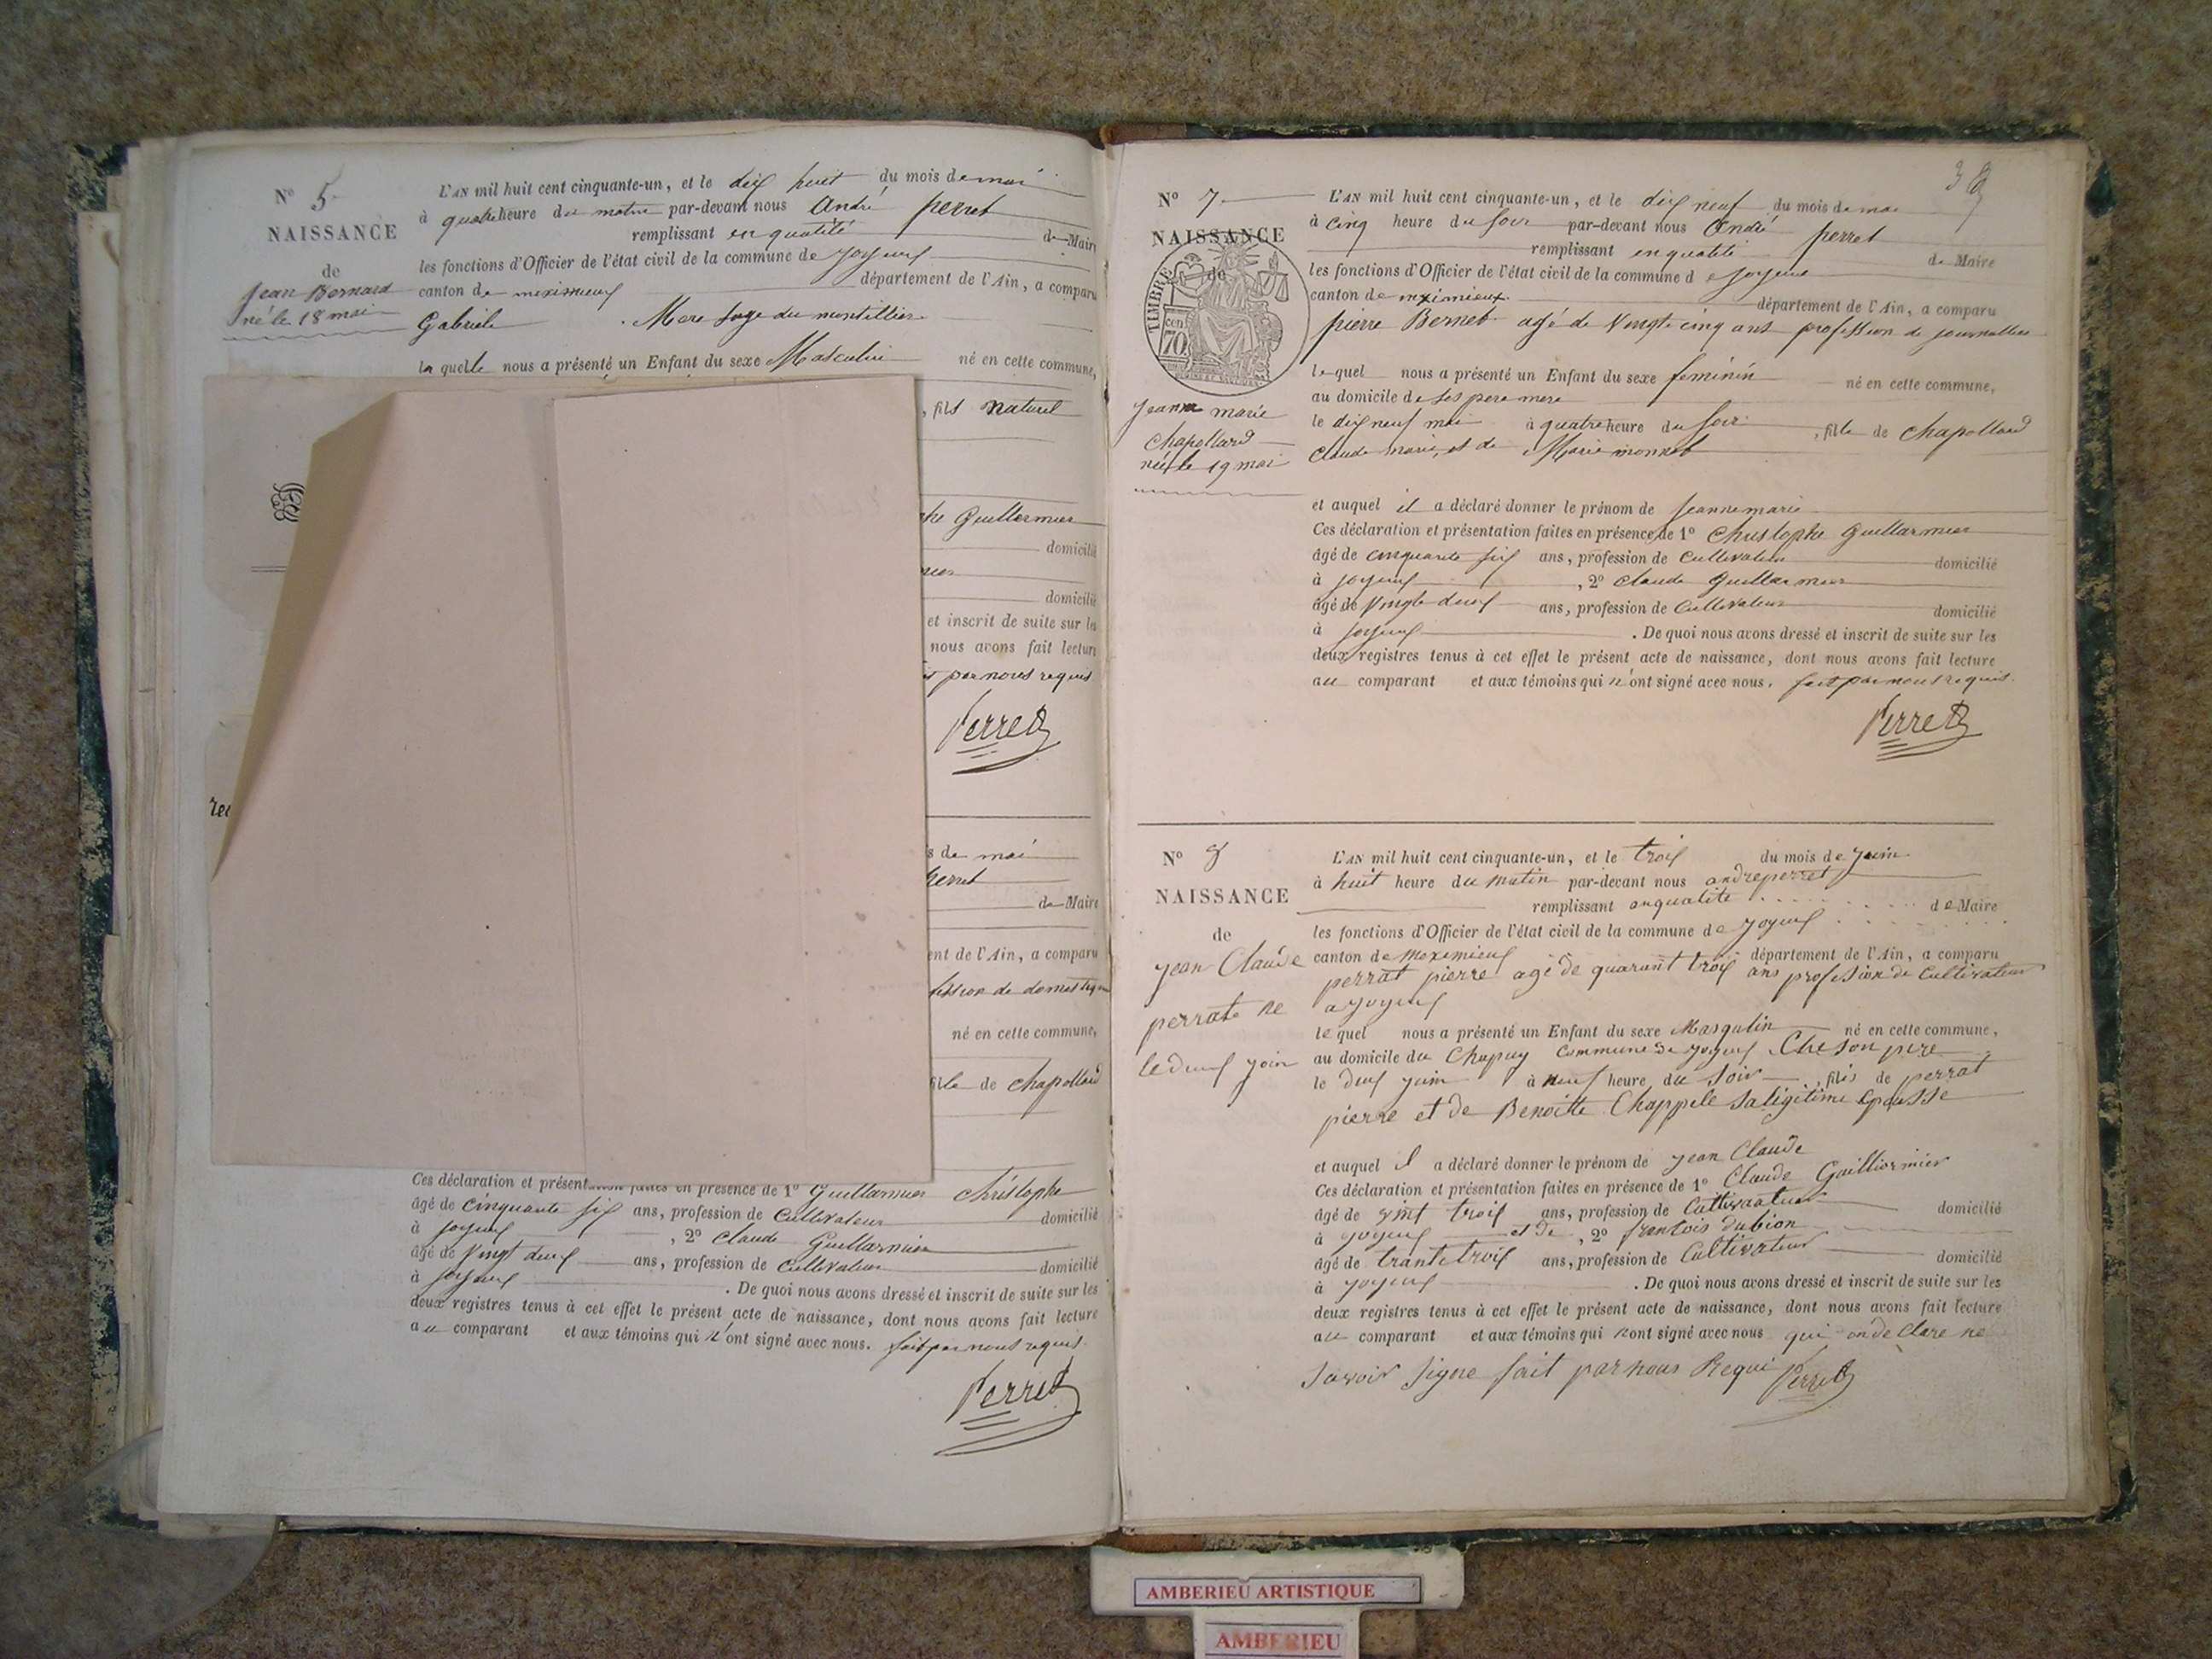 N° 5
NAISSANCE
de
Jean Bernard
né le 18 mai
L'AN mil huit cent cinquante-un, et le dix huit du mois de mai
à quatre heure du matin par-devant nous André perret
remplissant en qualité de Maire
les fonctions d'Officier de l'état civil de la commune de joyeux
canton de meximieux département de l'Ain, a comparu
Gabriele Mere sage du montellier
la quelle nous a présenté un Enfant du sexe Masculin né en cette commune,
, fils naturel
phe Guillermier
domicilié
mier
domicilié
et inscrit de suite sur les
nous avons fait lecture
par nous requis
Perret
s de mai
Perret
de Maire
ent de l'Ain, a comparu
fession de domestique
né en cette commune,
fille de chapolland
Ces déclaration et présentation faites en présence de 1° Guillarmier Christophe
âgé de cinquante six ans, profession de Cultivateur domicilié
à joyeux , 2° Claude Guillarmier
âgé de Vingt deux ans, profession de Cultivateur domicilié
à joyeux . De quoi nous avons dressé et inscrit de suite sur les
deux registres tenus à cet effet le présent acte de naissance, dont nous avons fait lecture
au comparant et aux témoins qui n'ont signé avec nous. fait par nous requis
Perret
38
N° 7
NAISSANCE
de
TIMBRE
70
Jeanne marie
Chapolland
née le 19 mai
L'AN mil huit cent cinquante-un, et le dix neuf du mois de mai
à cinq heure du soir par-devant nous André perret
remplissant en qualité de Maire
les fonctions d'Officier de l'état civil de la commune de joyeux
canton de meximieux département de l'Ain, a comparu
pierre Bernet agé de Vingt cinq ans profession de journallier
lequel nous a présenté un Enfant du sexe féminin né en cette commune,
au domicile de ses pere mere
le dix neuf mai à quatre heure du soir , fille de Chapolland
Claude marie, et de Marie monnet
et auquel il a déclaré donner le prénom de Jeanne marie
Ces déclaration et présentation faites en présence de 1° Christophe Guillarmier
âgé de cinquante six ans, profession de Cultivateur domicilié
à joyeux , 2° Claude Guillarmier
âgé de Vingt deux ans, profession de Cultivateur domicilié
à joyeux . De quoi nous avons dressé et inscrit de suite sur les
deux registres tenus à cet effet le présent acte de naissance, dont nous avons fait lecture
au comparant et aux témoins qui n'ont signé avec nous. fait par nous requis.
Perret
N° 8
NAISSANCE
de
jean Claude
perrat ne
le deux join
L'AN mil huit cent cinquante-un, et le trois du mois de juin
à huit heure du matin par-devant nous andre perret
remplissant anqualité de Maire
les fonctions d'Officier de l'état civil de la commune de joyeux
canton de meximieux département de l'Ain, a comparu
perrat pierre agé de quarant trois ans profesion de Cultivateur
a joyeux
lequel nous a présenté un Enfant du sexe Masqulin né en cette commune,
au domicile du Chapuy Commune de joyeux Che son pere
le deux juin à neuf heure du soir , filis de perrat
pierre et de Benoitte Chappele saligitime Epousse
et auquel il a déclaré donner le prénom de jean Claude
Ces déclaration et présentation faites en présence de 1° Claude Guilliormier
âgé de vint trois ans, profession de Cultivateur domicilié
à joyeux et de , 2° francois dubion
âgé de trante trois ans, profession de Cultivateur domicilié
à joyeux . De quoi nous avons dressé et inscrit de suite sur les
deux registres tenus à cet effet le présent acte de naissance, dont nous avons fait lecture
au comparant et aux témoins qui n'ont signé avec nous qui on de Clare ne
savoir signe fait par nous Requi Perret
AMBERIEU ARTISTIQUE
AMBERIEU